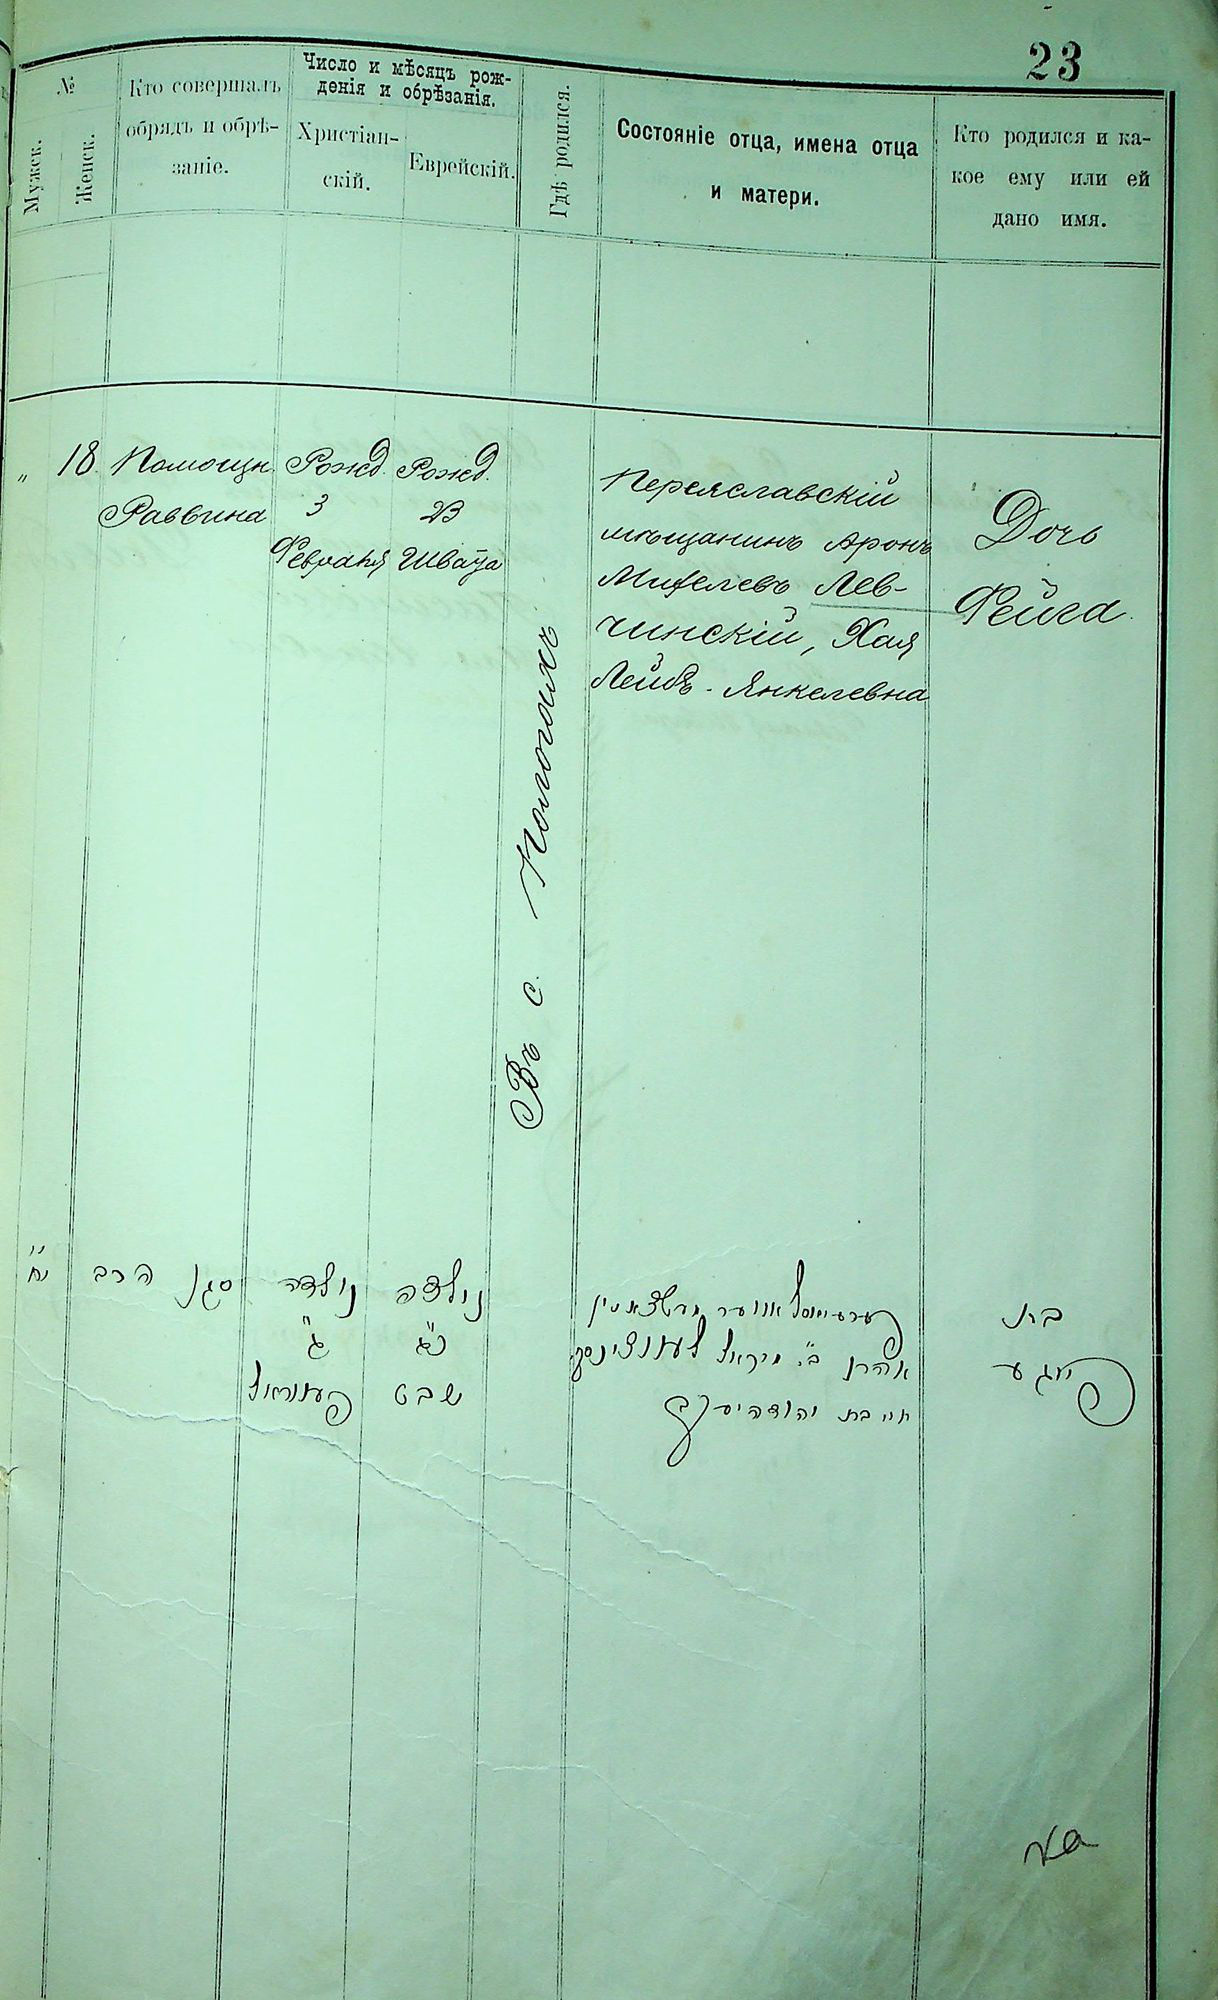 23
№
Мужск.
Женск.
Кто совершалъ
обрядъ и обрѣ-
заніе.
Число и мѣсяцъ рож-
денія и обрѣзанія.
Христіан-
скій.
Еврейскій.
Гдѣ родился.
Состояніе отца, имена отца
и матери.
Кто родился и ка-
кое ему или ей
дано имя.
„ 18
Помощн.
Раввина
Рожд.
3
Февраля
Рожд.
23
Швата
Въ с. Пологахъ
Переяславскій
мѣщанинъ Аронъ
Михелевъ Лев-
чинскій, Хая
Лейбъ-Янкелевна
Дочь
Фейга
סגן הרב
נולדה
ג״
פעווראל
נולדה
כ״ג
שבט
אהרן ב״ר מיכאל לעווצינסקי
חי׳ בת יהודה יעקב
בת
פייגע